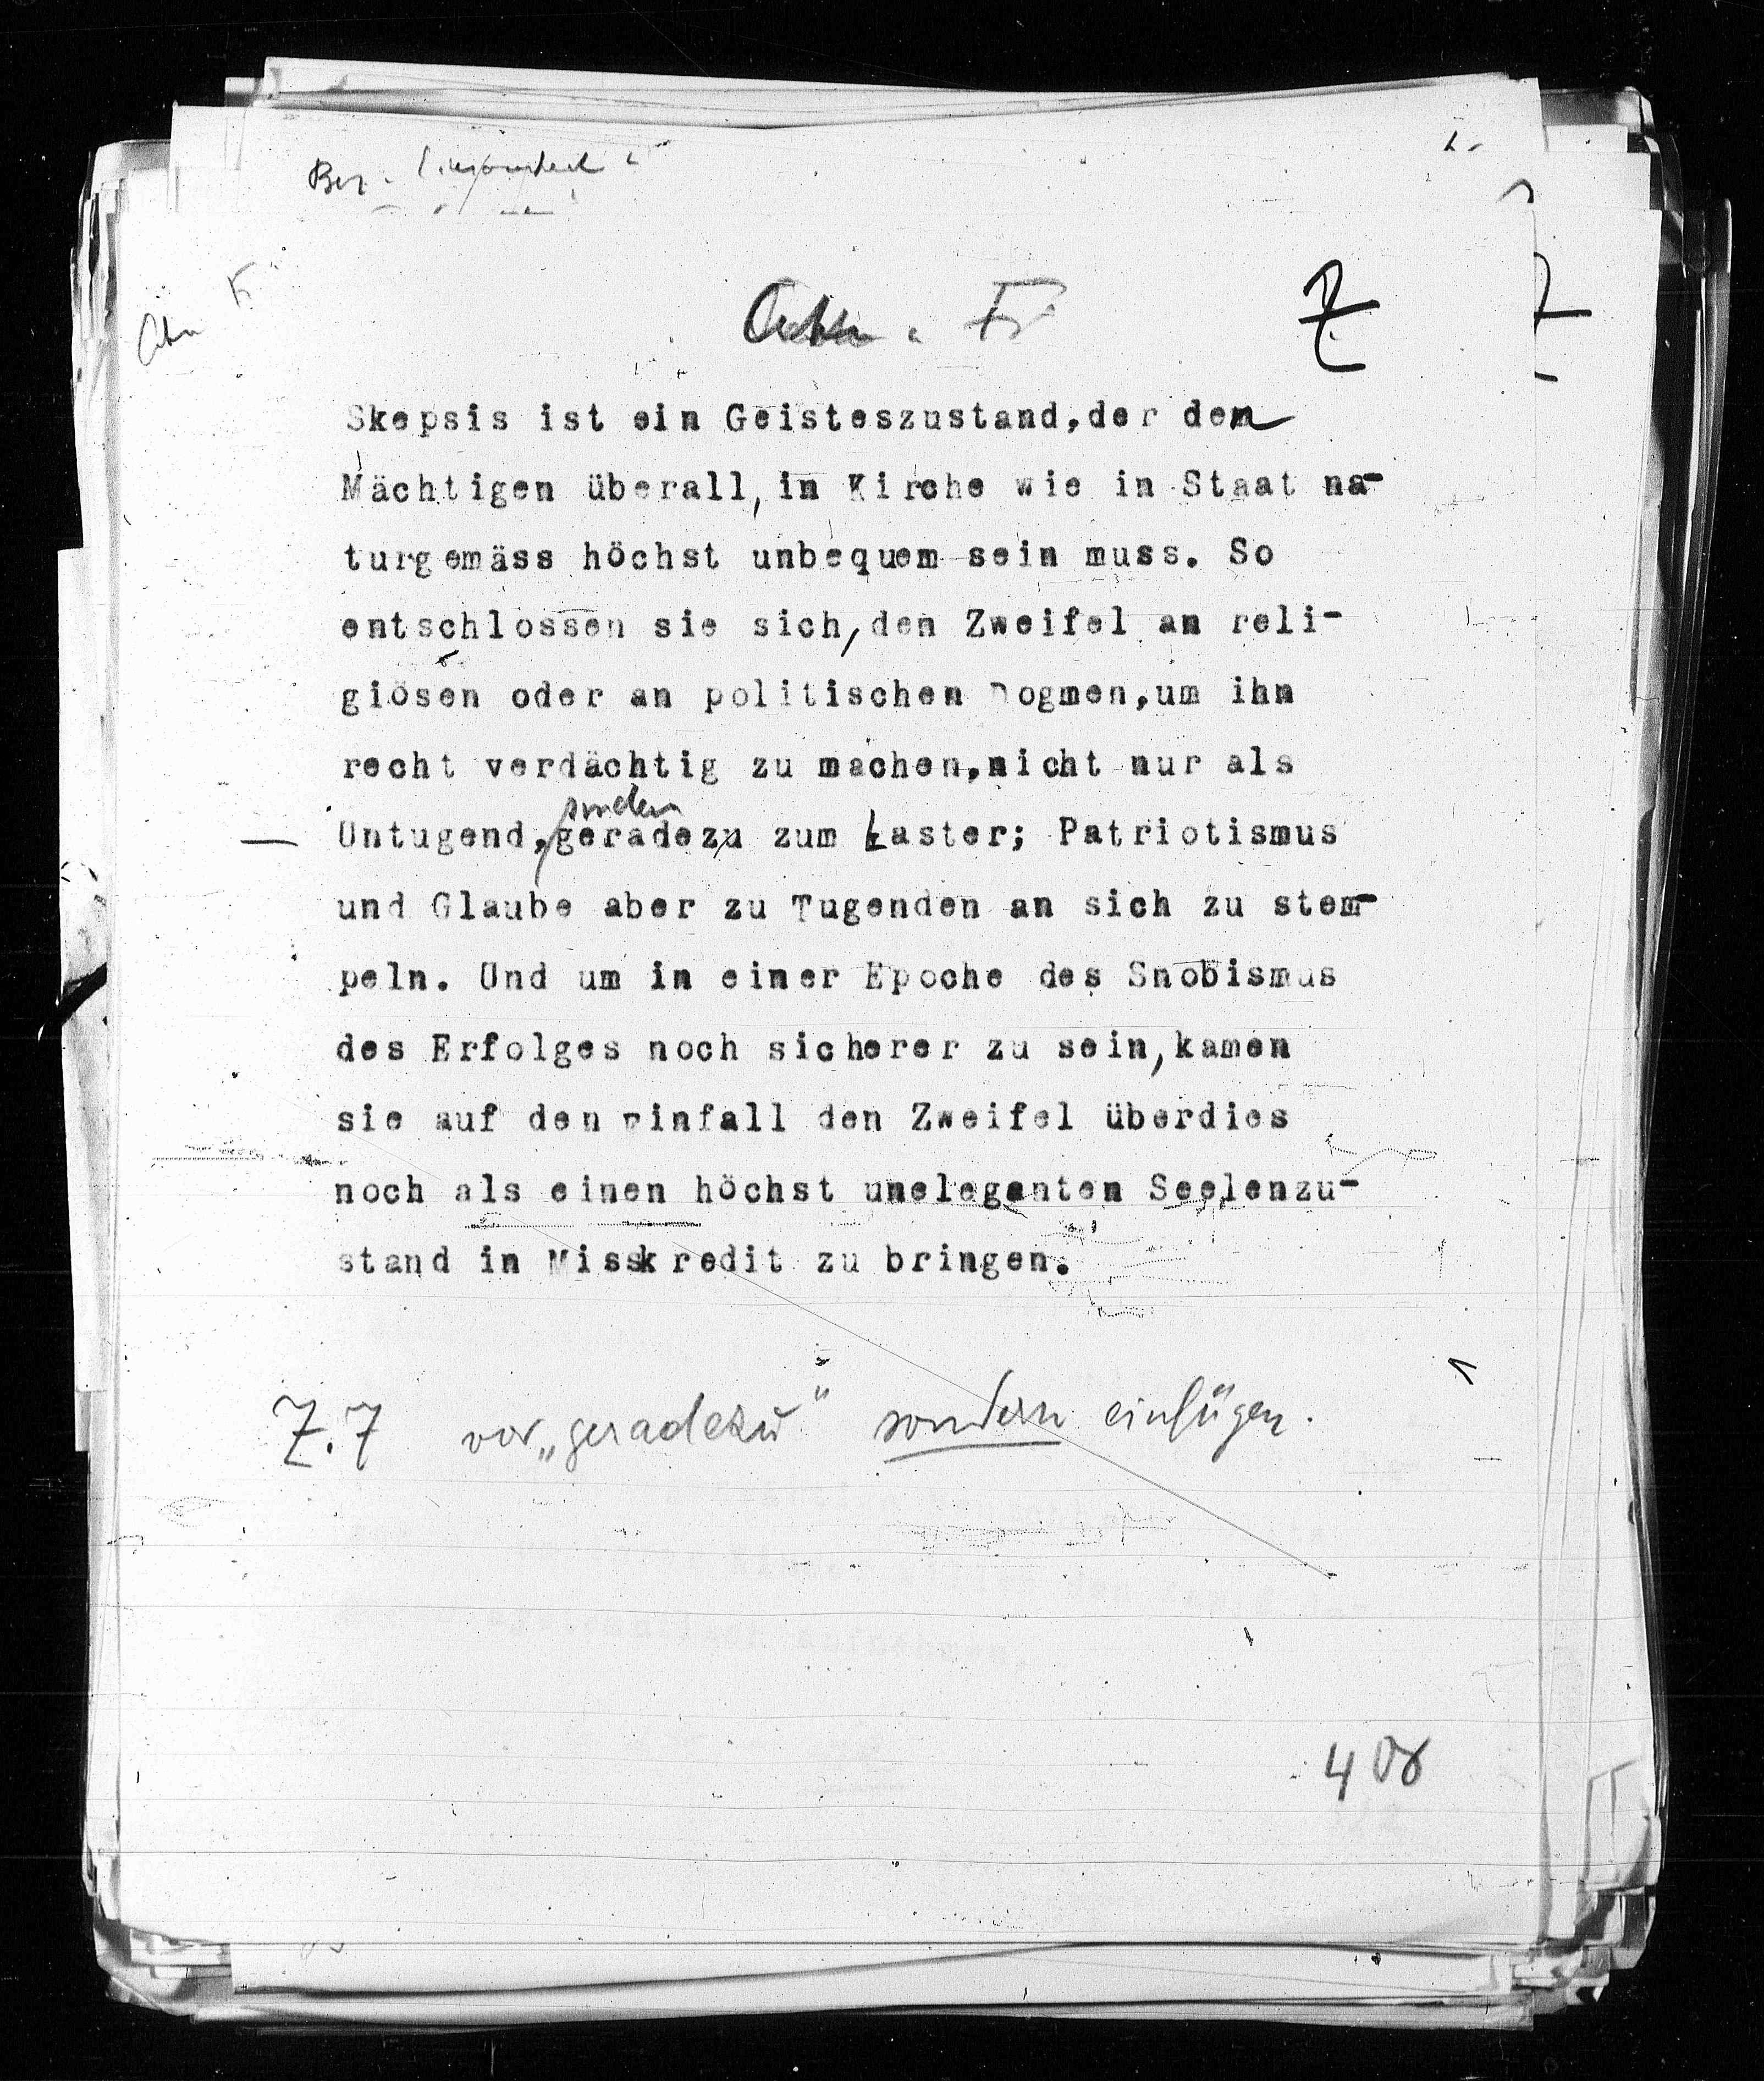 Skepsis ist ein Geisteszustand,der den
Mächtigen überall, in Kirche wie in Staat na-
turgemäss höchst unbequem sein muss. So
entschlossen sie sich, den Zweifel an reli-
giösen oder an politischen Dogmen,um ihn
recht verdächtig zu machen,nicht nur als
sondern
Untugend, geradezu zum Laster; Patriotismus
und Glaube aber zu Tugenden an sich zu stem-
peln. Und um in einer Epoche des Snobismus
des Erfolges noch sicherer zu sein, kamen
sie auf den Einfall den Zweifel überdies
noch als einen höchst uneleganten Seelenzu-
stand in Misskredit zu bringen.
Z.7 vor „geradezu" sondern einfügen.
408